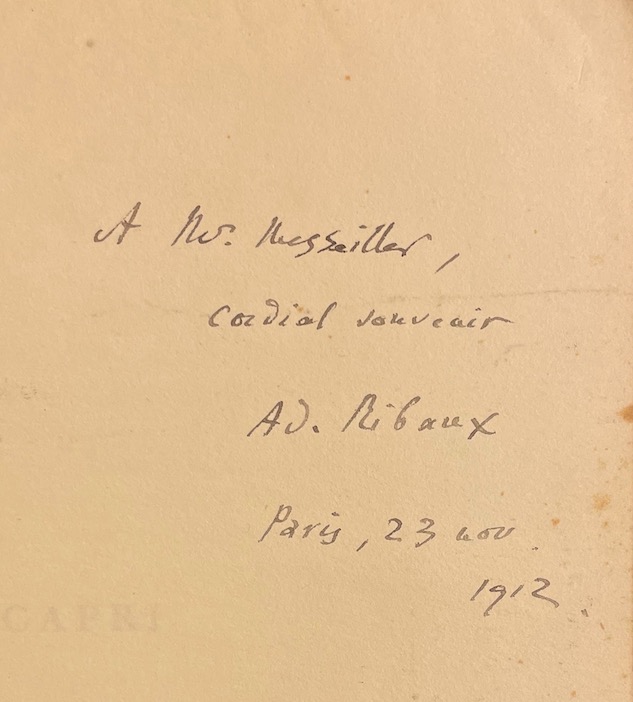 A Mr. Messeiller,
Cordial souvenir
Ad. Ribaux
Paris, 23 nov.
1912.
CAPRI